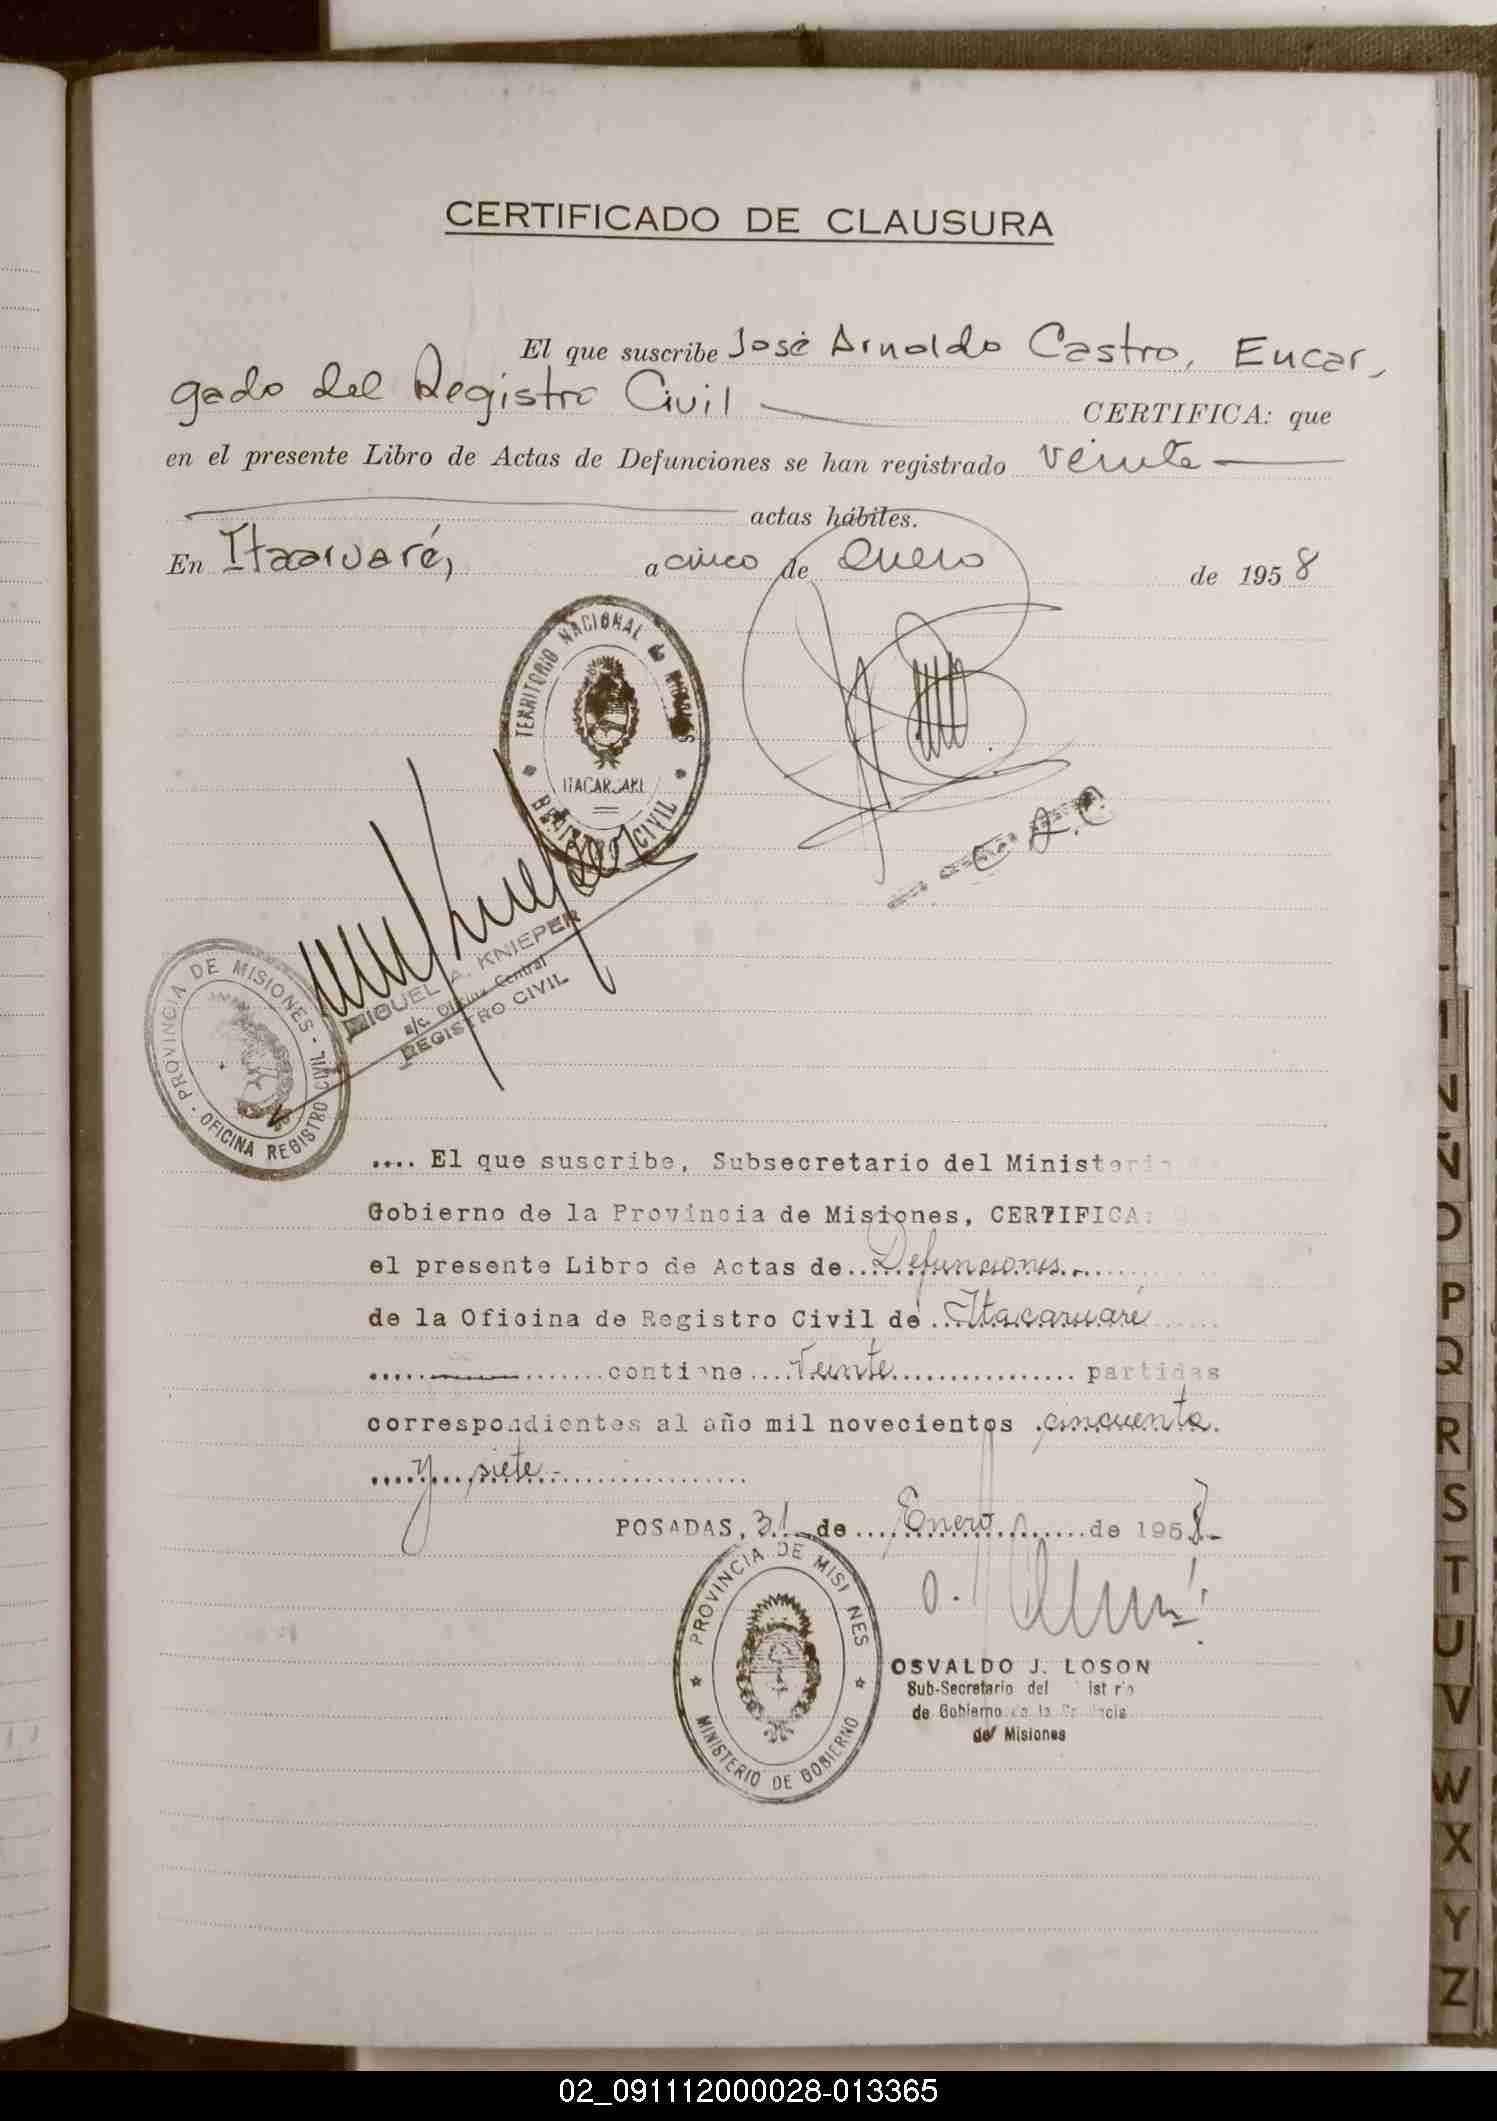 CERTIFICADO DE CLAUSURA
El que suscribe José Arnoldo Castro, Encar
gado del Registro Civil CERTIFICA: que
en el presente Libro de Actas de Defunciones se han registrado veinte
actas hábiles.
En Itacaruaré, a cinco de Enero de 1958
TERRITORIO NACIONAL de MISIONES
ITACARUARE
REGISTRO CIVIL
MIGUEL A. KNIEPER
a/c. Oficina Central
REGISTRO CIVIL
PROVINCIA DE MISIONES
OFICINA REGISTRO CIVIL
.... El que suscribe, Subsecretario del Ministerio de
Gobierno de la Provincia de Misiones, CERTIFICA: Que
el presente Libro de Actas de Defunciones
de la Oficina de Registro Civil de Itacaruaré
contiene veinte partidas
correspondientes al año mil novecientos cincuenta
y siete
POSADAS, 31 de Enero de 1958
PROVINCIA DE MISIONES
MINISTERIO DE GOBIERNO
OSVALDO J. LOSON
Sub-Secretario del Ministerio
de Gobierno de la Provincia
de Misiones
K
L
N
Ñ
O
P
Q
R
S
T
U
V
W
X
Y
Z
02_091112000028-013365